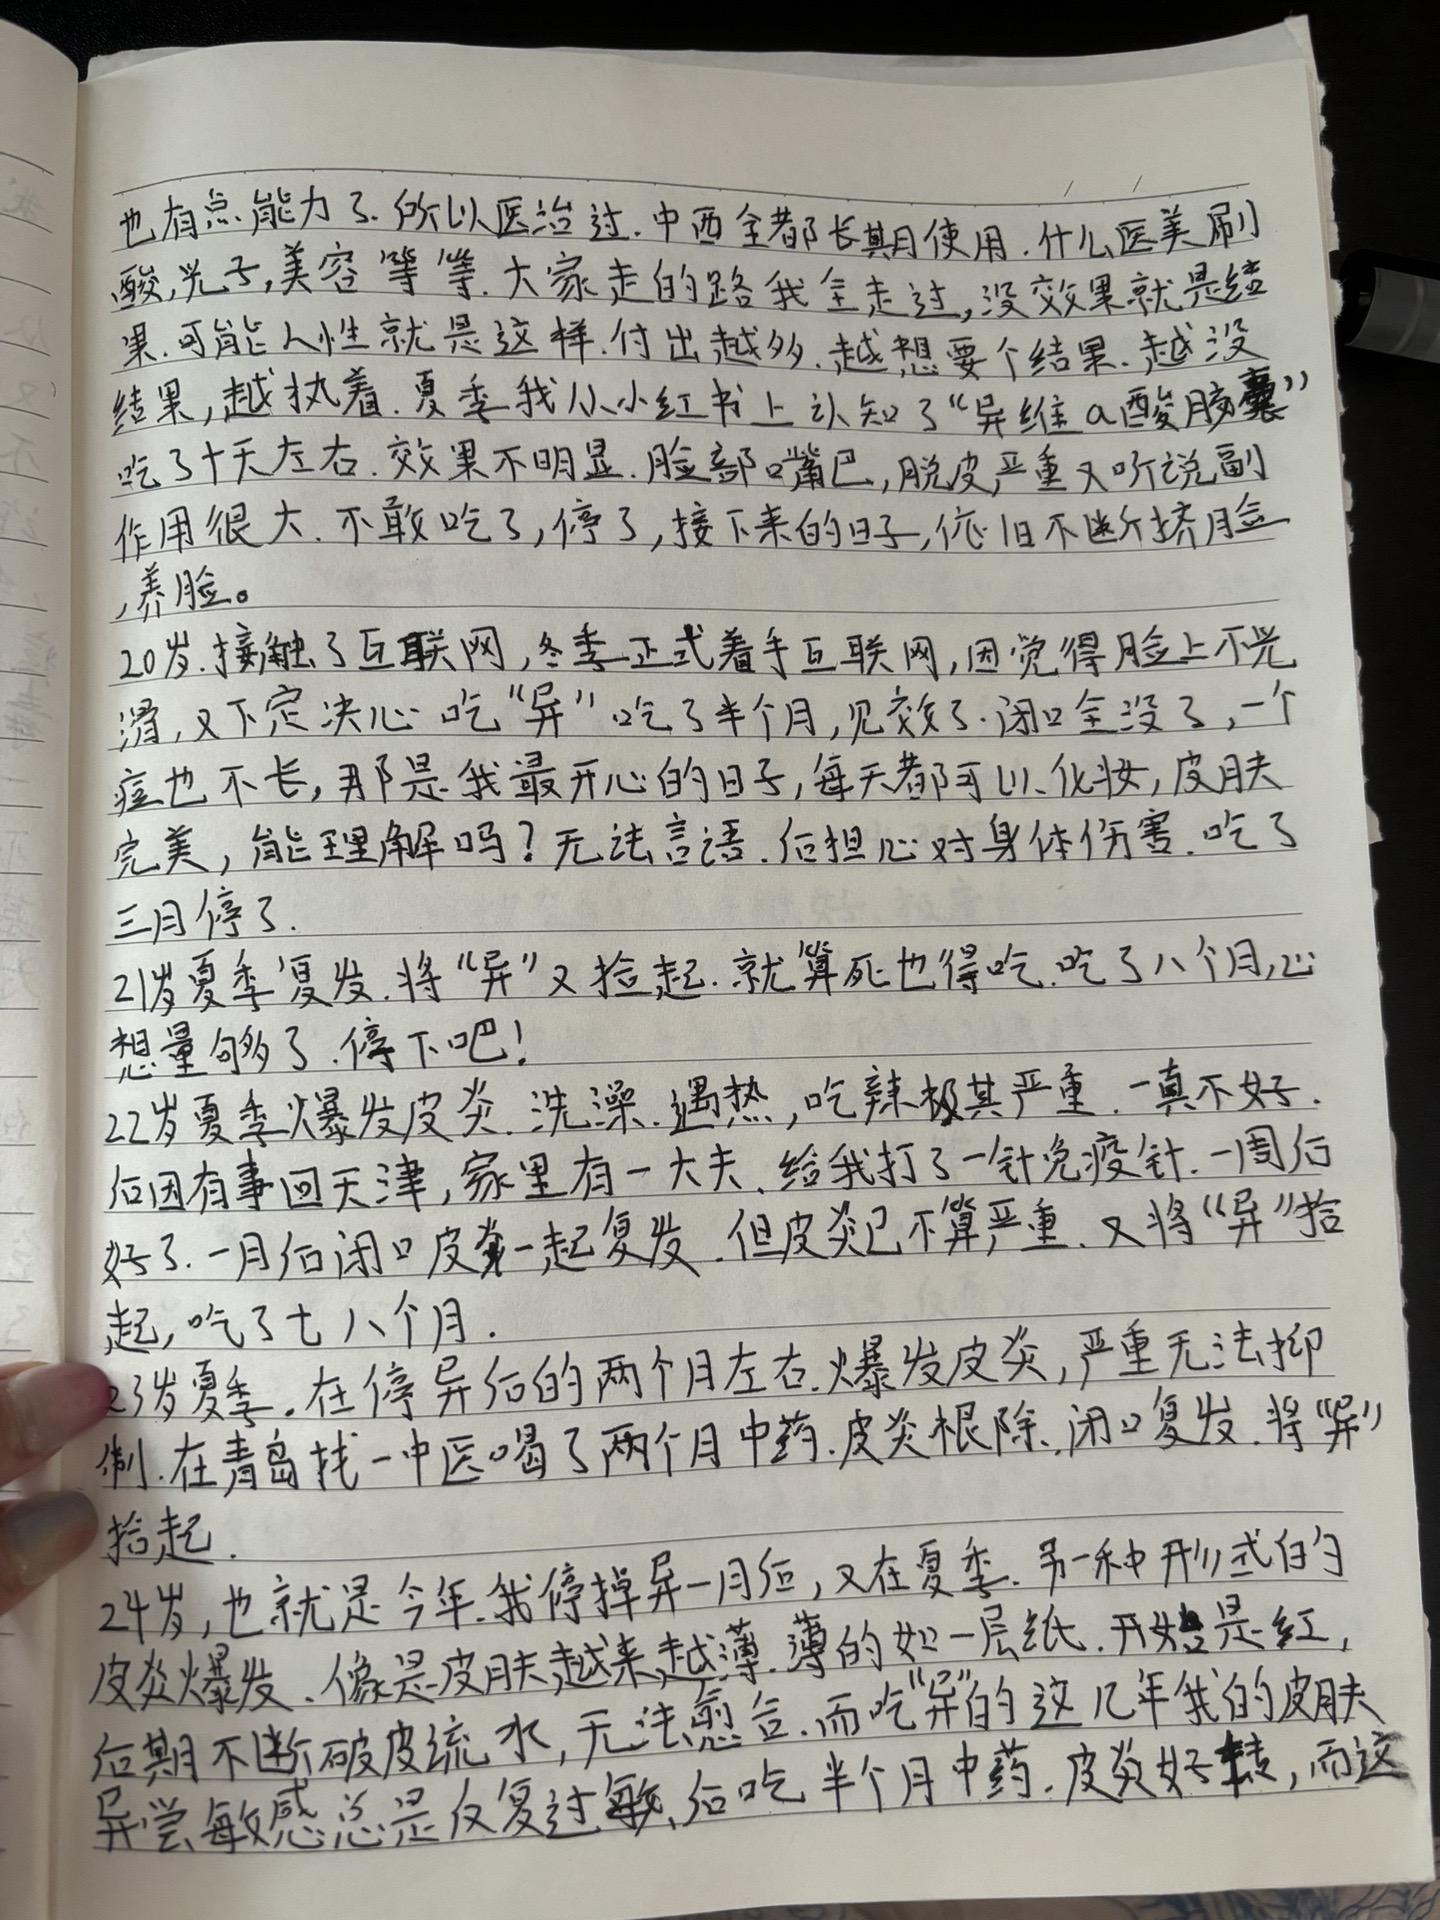 也有点能力了.所以医治过.中西全都长期使用.什么医美刷
酸,光子,美容等等.大家走的路我全走过,没效果就是结
果.可能人性就是这样.付出越多.越想要个结果.越没
结果,越执着.夏季我从小红书上认知了“异维a酸胶囊”
吃了十天左右.效果不明显.脸部嘴巴,脱皮严重又听说副
作用很大.不敢吃了,停了,接下来的日子,依旧不断挤脸
,养脸。
20岁.接触了互联网,冬季正式着手互联网,因觉得脸上不光
滑,又下定决心吃“异”吃了半个月,见效了.闭口全没了,一个
痘也不长,那是我最开心的日子,每天都可以化妆,皮肤
完美,能理解吗?无法言语.后担心对身体伤害.吃了
三月停了.
21岁夏季复发.将“异”又拾起.就算死也得吃.吃了八个月,心
想量够了.停下吧!
22岁夏季爆发皮炎.洗澡.遇热,吃辣极其严重.一真不好.
后因有事回天津,家里有一大夫.给我打了一针免疫针.一周后
好了.一月后闭口皮炎一起复发.但皮炎已不算严重.又将“异”拾
起,吃了七八个月.
23岁夏季.在停异后的两个月左右.爆发皮炎,严重无法抑
制.在青岛找一中医喝了两个月中药.皮炎根除.闭口复发.将“异”
拾起.
24岁,也就是今年.我停掉异一月后,又在夏季.另一种形式的
皮炎爆发.像是皮肤越来越薄.薄的如一层纸.开始是红,
后期不断破皮流水,无法愈合.而吃“异”的这几年我的皮肤
异常敏感总是反复过敏.后吃半个月中药.皮炎好转,而这